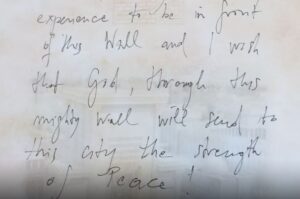 experience to be in front
of this Wall and I wish
that God, through this
mighty wall will send to
this city the strength
of Peace!